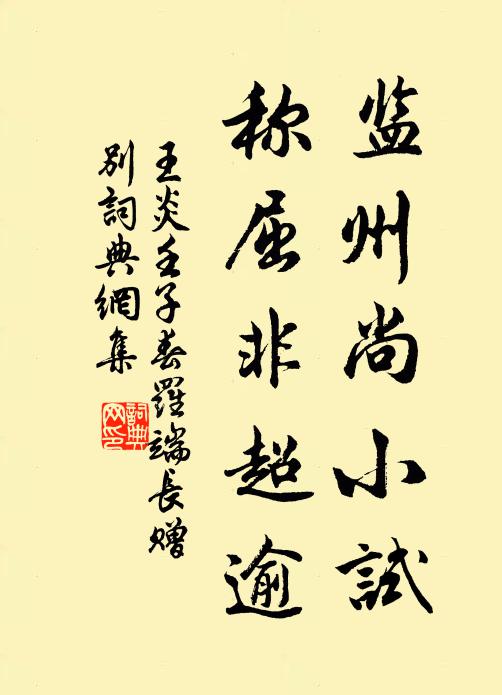 监州尚小試
称屈非超逾
王炎壬子春羅端長赠
别詞典網集
詞典网印